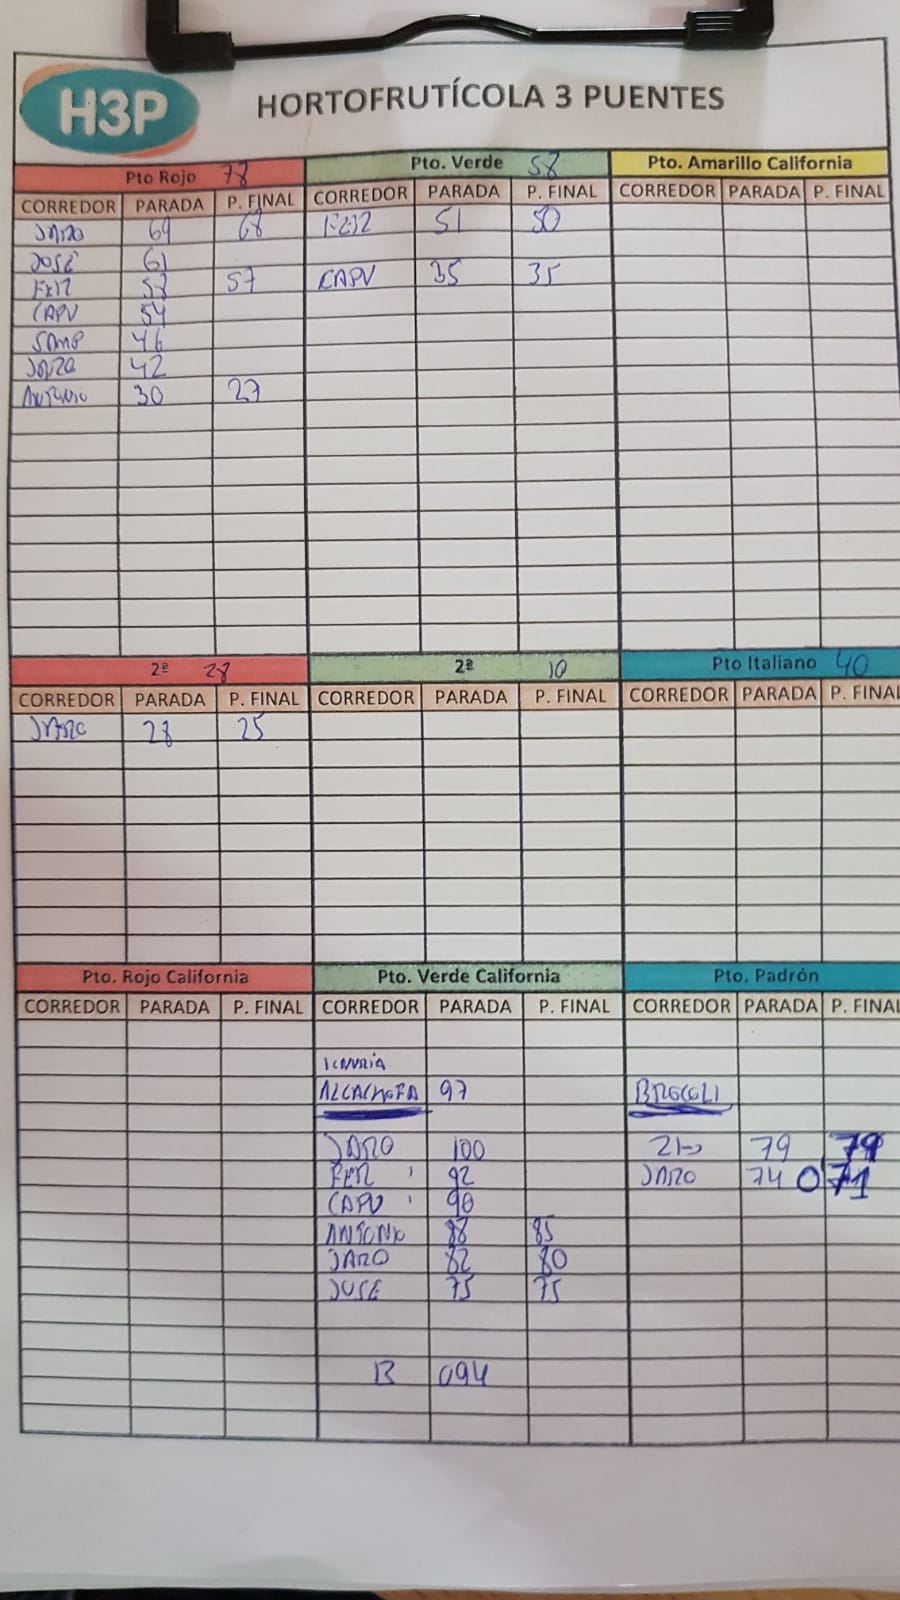 H3P HORTOFRUTÍCOLA 3 PUENTES
Pto Rojo 78
CORREDOR PARADA P. FINAL
JARO 69 68
JOSÉ 61
FER 57
CAPU 54
SAMP 46
42
ANTONIO 30 27
Pto. Verde 58
CORREDOR PARADA P. FINAL
FER 51 50
CAPU 35 35
Pto. Amarillo California
CORREDOR PARADA P. FINAL
2ª 28
CORREDOR PARADA P. FINAL
JARO 28 25
2ª 10
CORREDOR PARADA P. FINAL
Pto Italiano 40
CORREDOR PARADA P. FINAL
Pto. Rojo California
CORREDOR PARADA P. FINAL
Pto. Verde California
CORREDOR PARADA P. FINAL
ALCACHOFA 97
JARO 100
FER 92
CAPU 90
ANTONIO 88 85
JARO 82 80
JOSE 75 75
B 094
Pto. Padrón
CORREDOR PARADA P. FINAL
BROCOLI
79 79
JARO 74 071